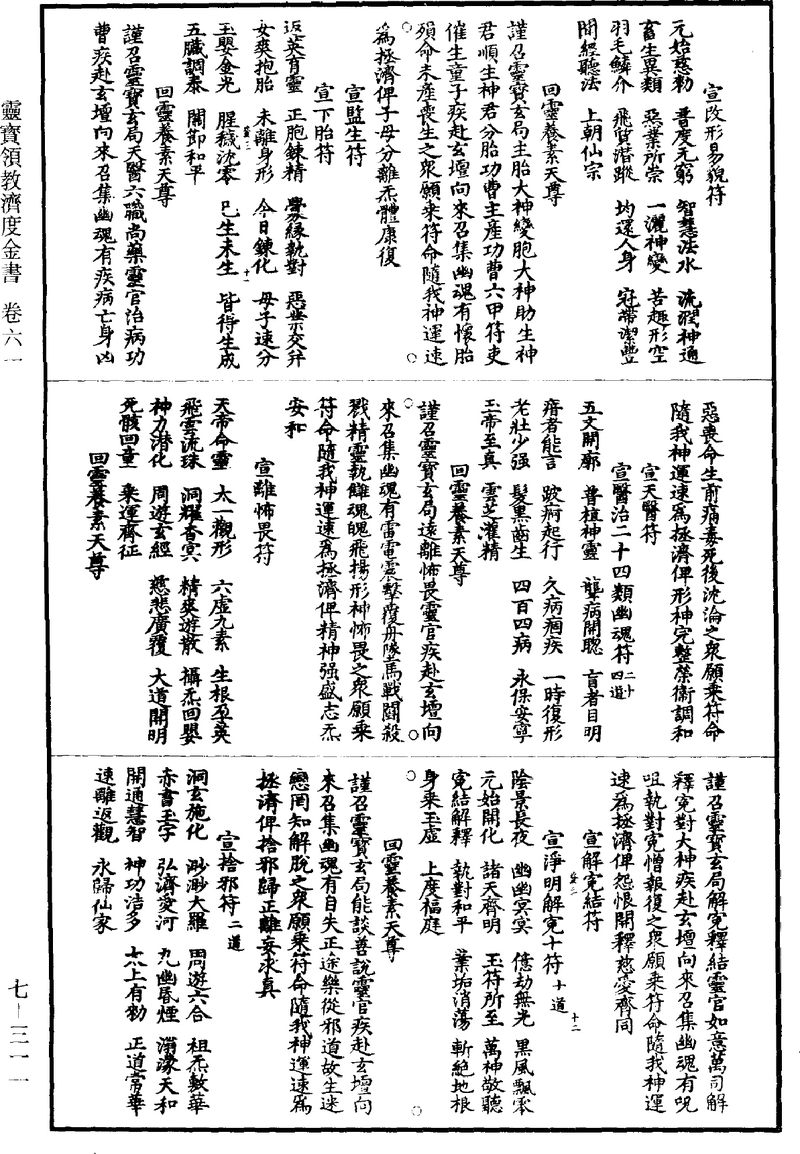 靈寶領教濟度金書 卷六一
七-三一一
宣改形易貌符
元始慈勑 普度无窮 智慧法水 流潤神通
畜生異類 惡業所崇 一灑神變 苦趣形空
羽毛鱗介 飛質潛蹤 均還人身 冠帶潔豐
聞經聽法 上朝仙宗
回靈養素天尊
謹召靈寶玄局主胎大神變胞大神助生神
君順生神君分胎功曹主産功曹六甲符吏
催生童子疾赴玄壇向來召集幽魂有懷胎
殞命未產喪生之衆願乘符命隨我神運速
為拯濟俾子母分離炁體康復
宣監生符
宣下胎符
返英育靈 正胞鍊精 釁緣執對 惡祟交并
女爽抱胎 未離身形 今日鍊化 母子速分
玉嬰金光 腥穢沈零 已生未生 皆得生成
五臟調泰 關節和平
回靈養素天尊
謹召靈寶玄局天醫六職尚藥靈官治病功
曹疾赴玄壇向來召集幽魂有疾病亡身凶
惡喪命生前痛毒死後沈淪之衆願乘符命
隨我神運速為拯濟俾形神完整榮衛調和
宣天醫符
宣醫治二十四類幽魂符 二十四道
五文開廓 普植神靈 聾病開聰 盲者目明
瘖者能言 跛痾起行 久病痼疾 一時復形
老壯少强 髮黑齒生 四百四病 永保安寧
玉帝至真 雲芝灌精
回靈養素天尊
謹召靈寶玄局遠離怖畏靈官疾赴玄壇向
來召集幽魂有雷電震擊覆舟墜馬戰鬬殺
戮精靈執讎魂魄飛揚形神怖畏之衆願乘
符命隨我神運速為拯濟俾精神强盛志炁
安和
宣離怖畏符
天帝命靈 太一觀形 六虛九素 生根孕英
飛雲流珠 洞耀杳冥 精爽遊散 攝炁回嬰
神力潛化 周遊玄經 慈悲廣覆 大道開明
死骸回童 乘運齊征
回靈養素天尊
謹召靈寶玄局解寃釋結靈官如意萬司解
釋寃對大神疾赴玄壇向來召集幽魂有呪
咀執對寃憎報復之衆願乘符命隨我神運
速為拯濟俾怨恨開釋慈愛齊同
宣解寃結符
宣淨明解寃十符 十道
陰景長夜 幽幽冥冥 億劫無光 黑風飄零
元始開化 諸天齊明 玉符所至 萬神敬聽
寃結解釋 執對和平 業垢消蕩 斬絶地根
身乘玉虛 上度福庭
回靈養素天尊
謹召靈寶玄局能談善說靈官疾赴玄壇向
來召集幽魂有自失正途樂從邪道故生迷
戀罔知解脫之衆願乘符命隨我神運速為
拯濟俾捨邪歸正離妄求真
宣捨邪符 二道
洞玄施化 渺渺大羅 周遊六合 祖炁敷華
赤書玉字 弘濟愛河 九幽昏煙 滃濛天和
開通慧智 神功浩多 太上有勑 正道常華
速離返觀 永歸仙家